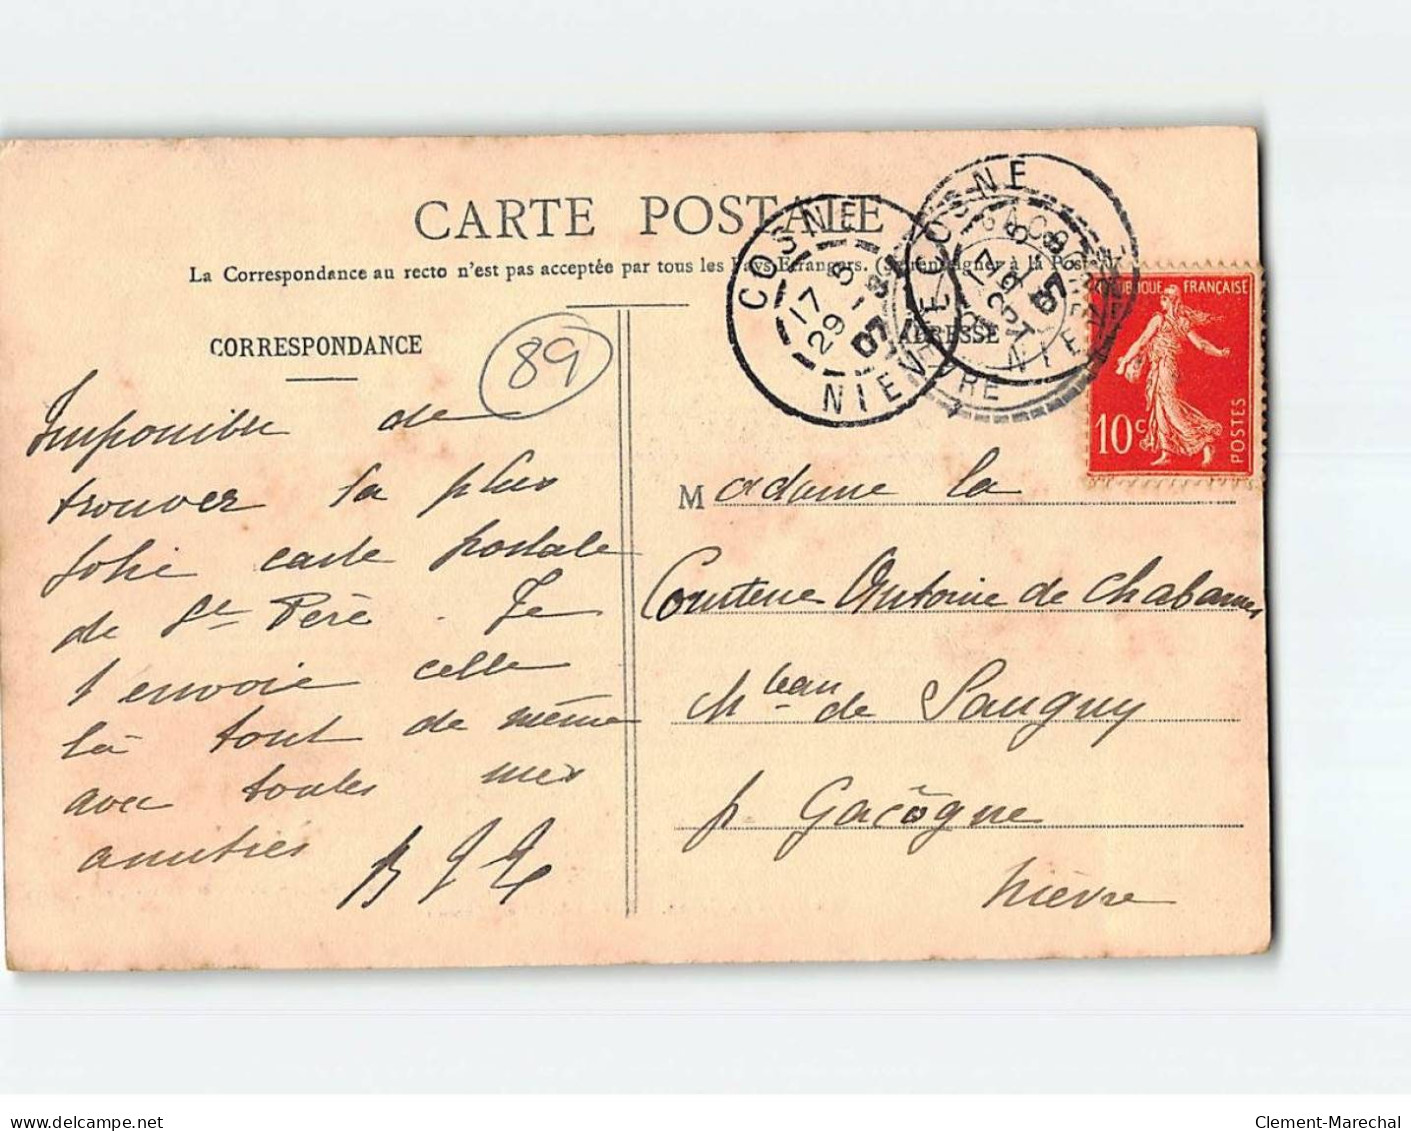 CARTE POSTALE
La Correspondance au recto n'est pas acceptée par tous les Pays Etrangers. (Se renseigner à la Poste)
CORRESPONDANCE
ADRESSE
89
COSNE
17 8
29 - 8
07
NIEVRE
COSNE
17 8
29 - 8
07
NIEVRE
GACOGNE
REPUBLIQUE FRANÇAISE
10 c
POSTES
Impossible de
trouver la plus
jolie carte postale
de St Père. Je
t'envoie celle
là tout de même
avec toutes mes
amitiés
Madame la
Comtesse Antoine de Chabannes
Chteau de Sauguy
pr Gacôgne
Nièvre
delcampe.net
Clement-Marechal